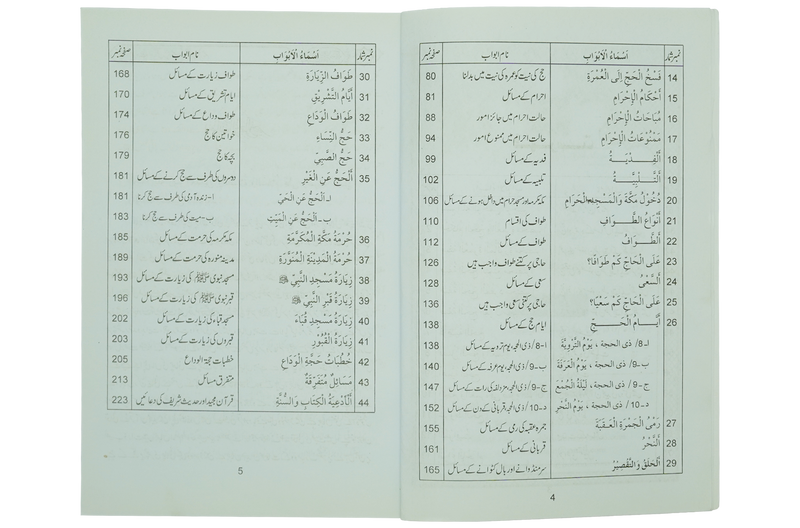 نمبر شمار اَسْمَاءُ الْاَبْوَاب نام ابواب صفحہ نمبر
14 فَسْخُ الْحَجِّ اِلَى الْعُمْرَةِ حج کی نیت کو عمرہ کی نیت میں بدلنا 80
15 اَحْكَامُ الْاِحْرَامِ احرام کے مسائل 81
16 مُبَاحَاتُ الْاِحْرَامِ حالت احرام میں جائز امور 88
17 مَمْنُوْعَاتُ الْاِحْرَامِ حالت احرام میں ممنوع امور 94
18 اَلْفِدْيَةُ فدیہ کے مسائل 99
19 اَلتَّلْبِيَةُ تلبیہ کے مسائل 102
20 دُخُوْلُ مَكَّةَ وَالْمَسْجِدِ الْحَرَامِ مکہ مکرمہ اور مسجد حرام میں داخل ہونے کے مسائل 106
21 اَنْوَاعُ الطَّوَافِ طواف کی اقسام 110
22 اَلطَّوَافُ طواف کے مسائل 112
23 عَلَى الْحَاجِّ كَمْ طَوَافًا؟ حاجی پر کتنے طواف واجب ہیں 126
24 اَلسَّعْيُ سعی کے مسائل 128
25 عَلَى الْحَاجِّ كَمْ سَعْيًا؟ حاجی پر کتنی سعی واجب ہیں 136
26 اَيَّامُ الْحَجِّ ایام حج کے مسائل 138
ا-8/ ذی الحجة ، يَوْمُ التَّرْوِيَةِ ا-8/ ذی الحجہ، یوم ترویہ کے مسائل 138
ب-9/ ذی الحجة ، يَوْمُ الْعَرَفَةِ ب-9/ ذی الحجہ، یوم عرفہ کے مسائل 140
ج-9/ ذی الحجة ، لَيْلَةُ الْجُمَعِ ج-9/ ذی الحجہ، مزدلفہ کی رات کے مسائل 147
د-10/ ذی الحجة ، يَوْمُ النَّحْرِ د-10/ ذی الحجہ، قربانی کے دن کے مسائل 152
27 رَمْيُ الْجَمْرَةِ الْعَقَبَةِ جمرہ عقبہ کی رمی کے مسائل 155
28 اَلنَّحْرُ قربانی کے مسائل 161
29 اَلْحَلْقُ وَالتَّقْصِيْرُ سر منڈوانے اور بال کٹوانے کے مسائل 165
4
نمبر شمار اَسْمَاءُ الْاَبْوَاب نام ابواب صفحہ نمبر
30 طَوَافُ الزِّيَارَةِ طواف زیارت کے مسائل 168
31 اَيَّامُ التَّشْرِيْقِ ایام تشریق کے مسائل 170
32 طَوَافُ الْوَدَاعِ طواف وداع کے مسائل 174
33 حَجُّ النِّسَاءِ خواتین کا حج 176
34 حَجُّ الصَّبِيِّ بچہ کا حج 179
35 اَلْحَجُّ عَنِ الْغَيْرِ دوسروں کی طرف سے حج کرنے کے مسائل 181
ا-اَلْحَجُّ عَنِ الْحَيِّ ا-زندہ آدمی کی طرف سے حج کرنا 181
ب-اَلْحَجُّ عَنِ الْمَيِّتِ ب-میت کی طرف سے حج کرنا 183
36 حُرْمَةُ مَكَّةَ الْمُكَرَّمَةِ مکہ مکرمہ کی حرمت کے مسائل 185
37 حُرْمَةُ الْمَدِيْنَةِ الْمُنَوَّرَةِ مدینہ منورہ کی حرمت کے مسائل 189
38 زِيَارَةُ مَسْجِدِ النَّبِيِّ ﷺ مسجد نبوی ﷺ کی زیارت کے مسائل 193
39 زِيَارَةُ قَبْرِ النَّبِيِّ ﷺ قبر نبوی ﷺ کی زیارت کے مسائل 196
40 زِيَارَةُ مَسْجِدِ قُبَاءَ مسجد قباء کی زیارت کے مسائل 202
41 زِيَارَةُ الْقُبُوْرِ قبروں کی زیارت کے مسائل 203
42 خُطُبَاتُ حَجَّةِ الْوَدَاعِ خطبات حجۃ الوداع 205
43 مَسَائِلُ مُتَفَرِّقَةٌ متفرق مسائل 213
44 اَلْاَدْعِيَةُ الْكِتَابِ وَالسُّنَّةِ قرآن مجید اور حدیث شریف کی دعائیں 223
5